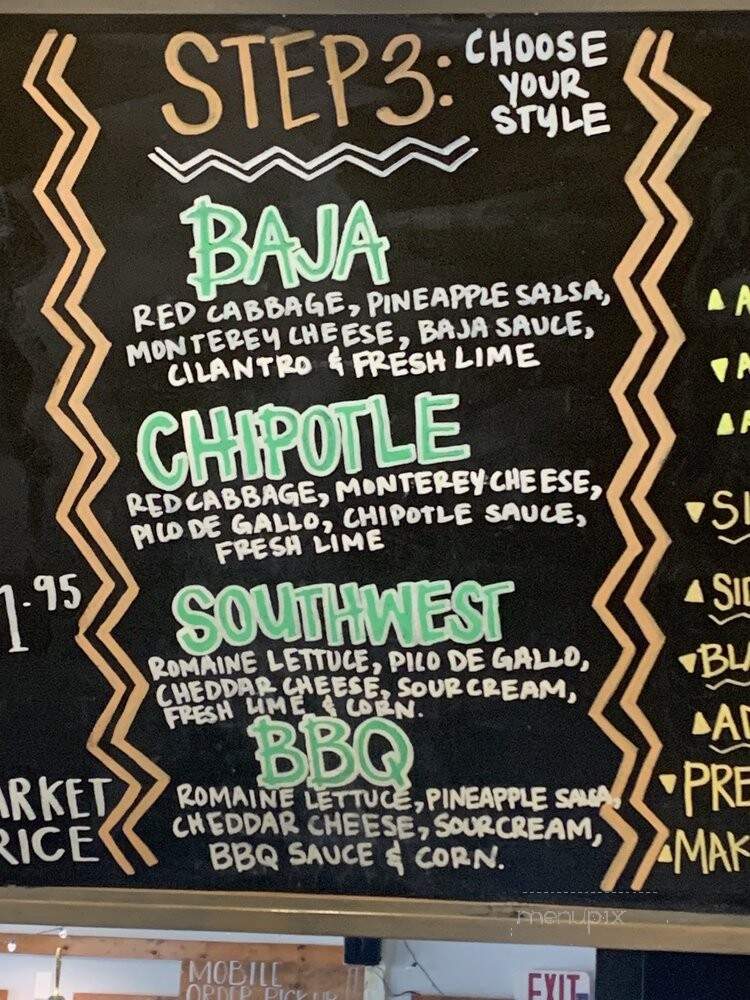 STEP 3: CHOOSE
YOUR
STYLE
BAJA
RED CABBAGE, PINEAPPLE SALSA,
MONTEREY CHEESE, BAJA SAUCE,
CILANTRO & FRESH LIME
CHIPOTLE
RED CABBAGE, MONTEREY CHEESE,
PICO DE GALLO, CHIPOTLE SAUCE,
FRESH LIME
SOUTHWEST
ROMAINE LETTUCE, PICO DE GALLO,
CHEDDAR CHEESE, SOUR CREAM,
FRESH LIME & CORN.
BBQ
ROMAINE LETTUCE, PINEAPPLE SALSA,
CHEDDAR CHEESE, SOUR CREAM,
BBQ SAUCE & CORN.
1.95
ARKET
RICE
A
A
A
SI
SI
BLA
AD
PRE
MAK
menupix
MOBILE
ORDER PICK UP
EXIT